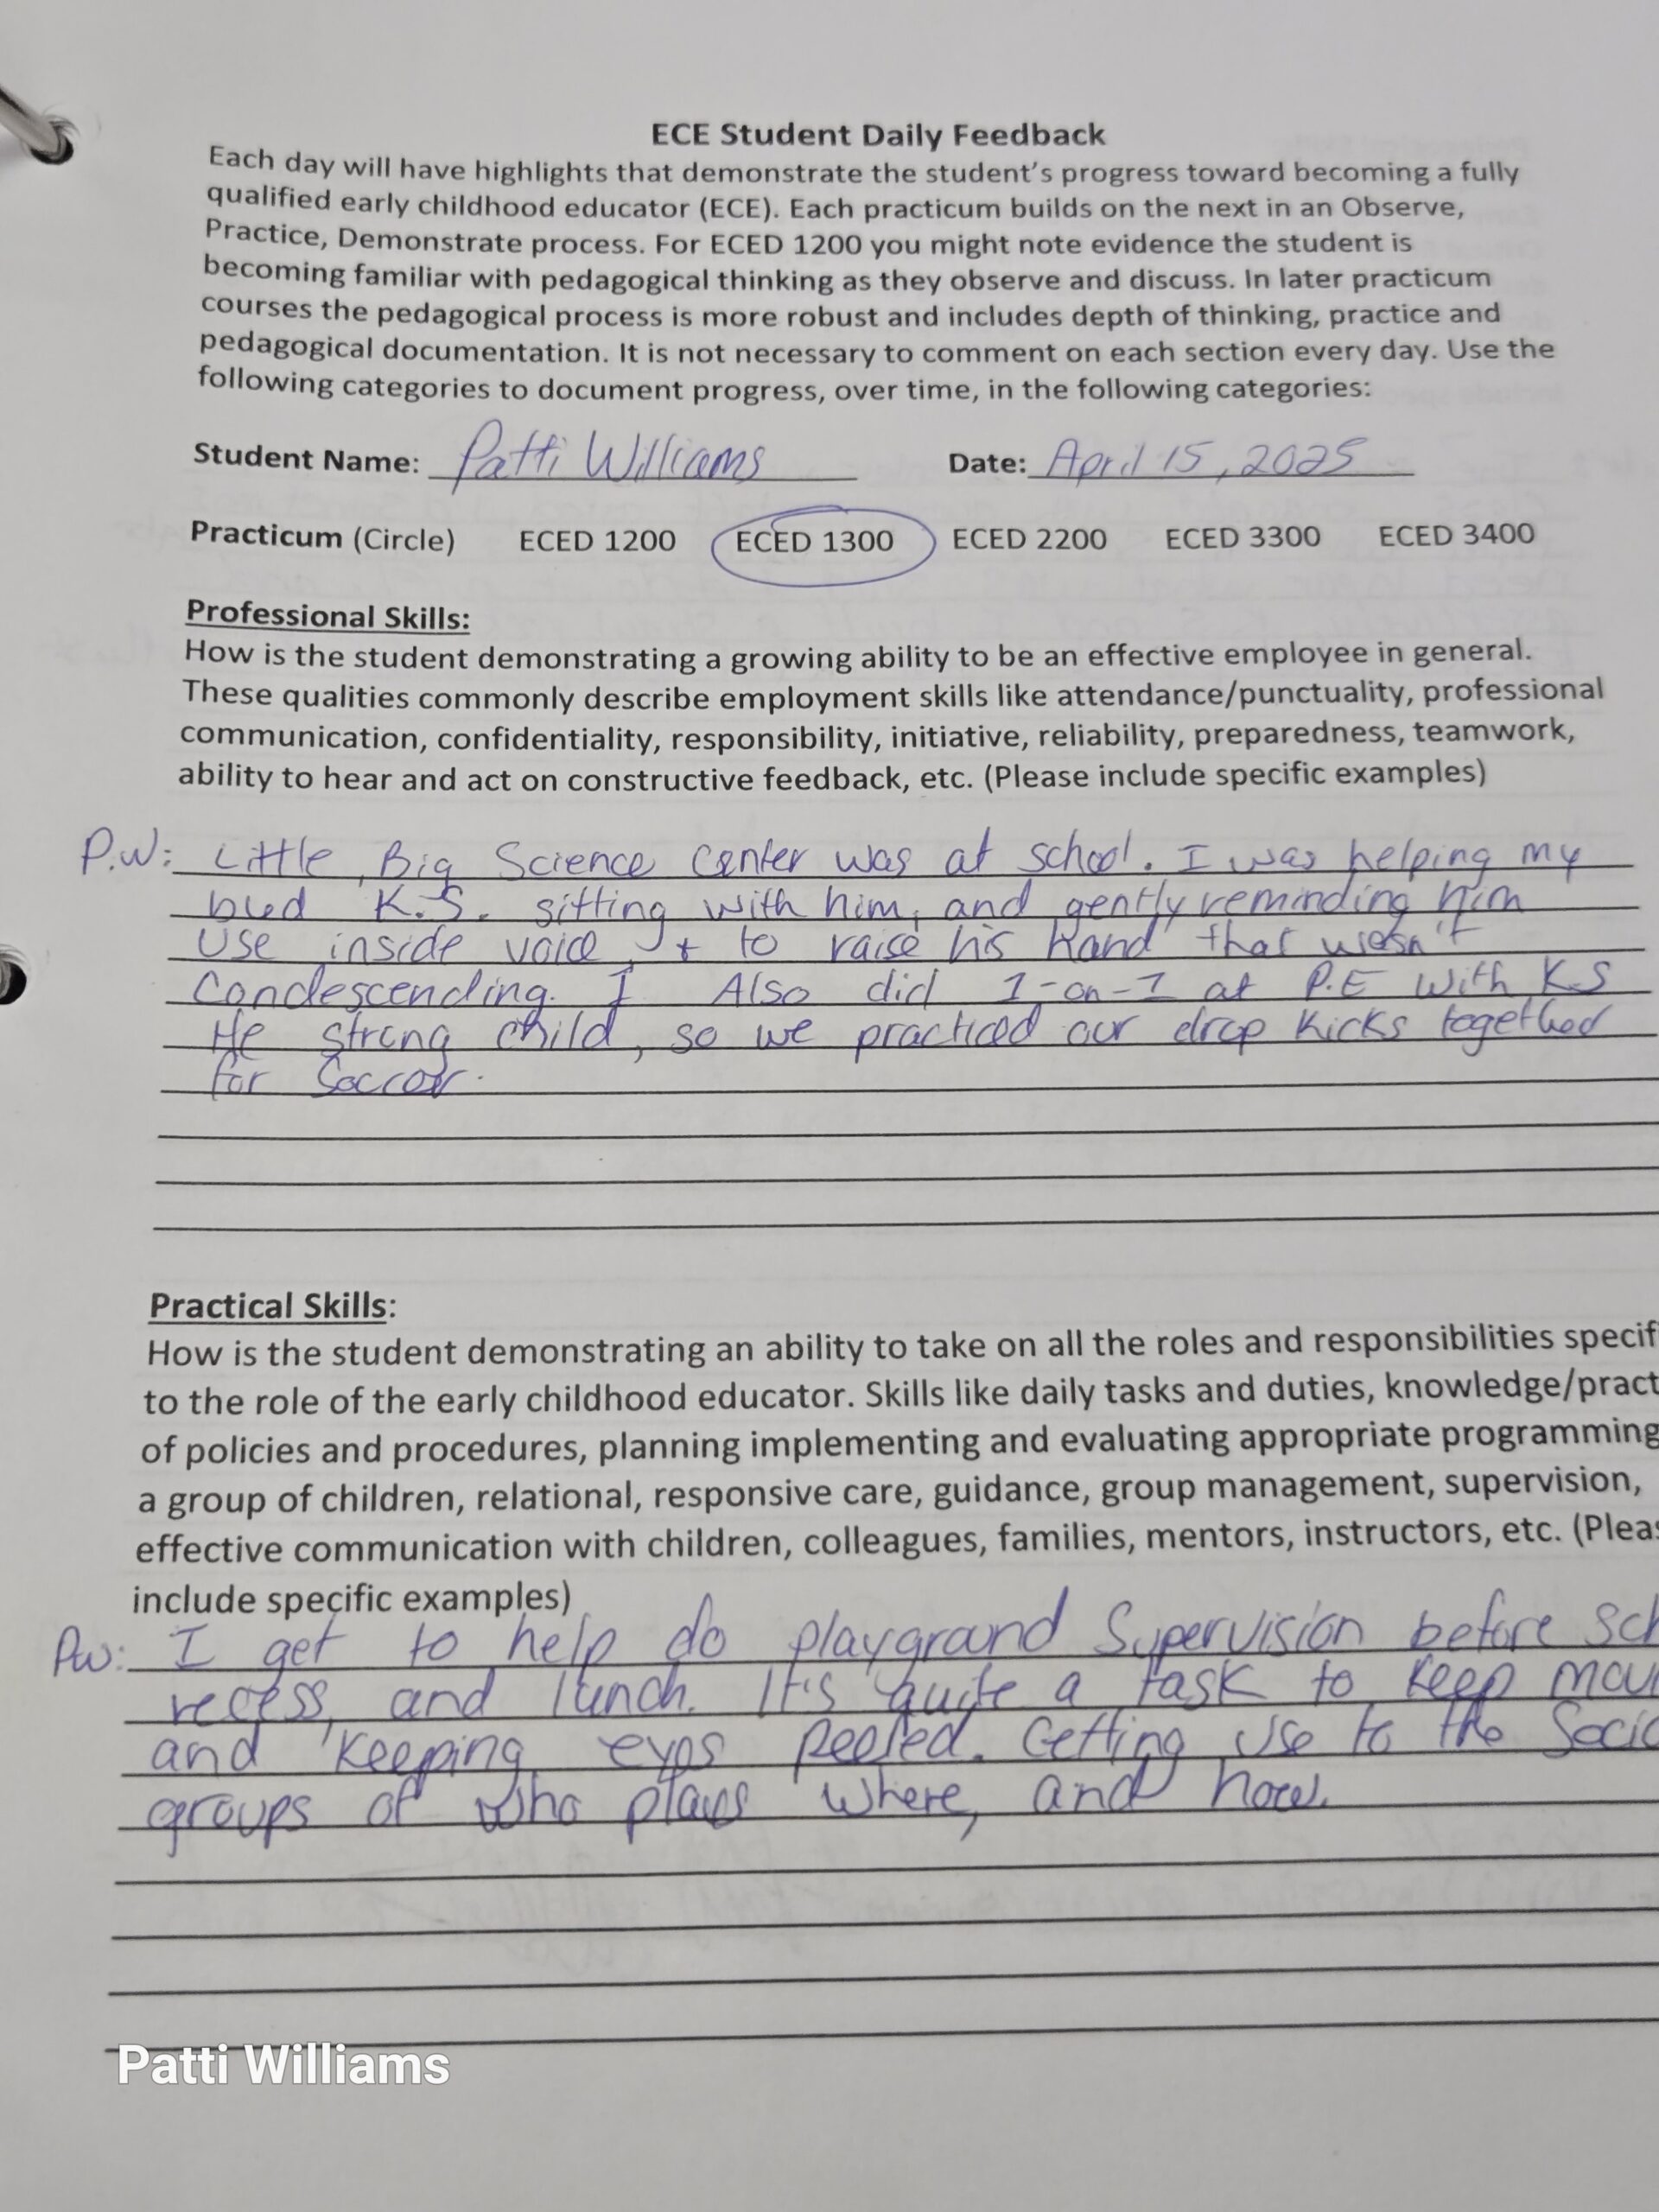 ECE Student Daily Feedback
Each day will have highlights that demonstrate the student's progress toward becoming a fully
qualified early childhood educator (ECE). Each practicum builds on the next in an Observe,
Practice, Demonstrate process. For ECED 1200 you might note evidence the student is
becoming familiar with pedagogical thinking as they observe and discuss. In later practicum
courses the pedagogical process is more robust and includes depth of thinking, practice and
pedagogical documentation. It is not necessary to comment on each section every day. Use the
following categories to document progress, over time, in the following categories:
Student Name: Patti Williams Date: April 15, 2025
Practicum (Circle) ECED 1200 ECED 1300 ECED 2200 ECED 3300 ECED 3400
Professional Skills:
How is the student demonstrating a growing ability to be an effective employee in general.
These qualities commonly describe employment skills like attendance/punctuality, professional
communication, confidentiality, responsibility, initiative, reliability, preparedness, teamwork,
ability to hear and act on constructive feedback, etc. (Please include specific examples)
P.W: Little Big Science Center was at school. I was helping my
bud K.S. sitting with him, and gently reminding him
Use inside voice, + to raise his hand that wasn't
Condescending. I Also did 1-on-1 at P.E with K.S
He strong child, so we practiced our drop kicks together
for Soccer.
Practical Skills:
How is the student demonstrating an ability to take on all the roles and responsibilities specif
to the role of the early childhood educator. Skills like daily tasks and duties, knowledge/pract
of policies and procedures, planning implementing and evaluating appropriate programming
a group of children, relational, responsive care, guidance, group management, supervision,
effective communication with children, colleagues, families, mentors, instructors, etc. (Pleas
include specific examples)
PW: I get to help do playground Supervision before sch
recess, and lunch. It's quite a task to keep mov
and keeping eyes peeled. Getting use to the Socia
groups of who plays where, and how.
Patti Williams